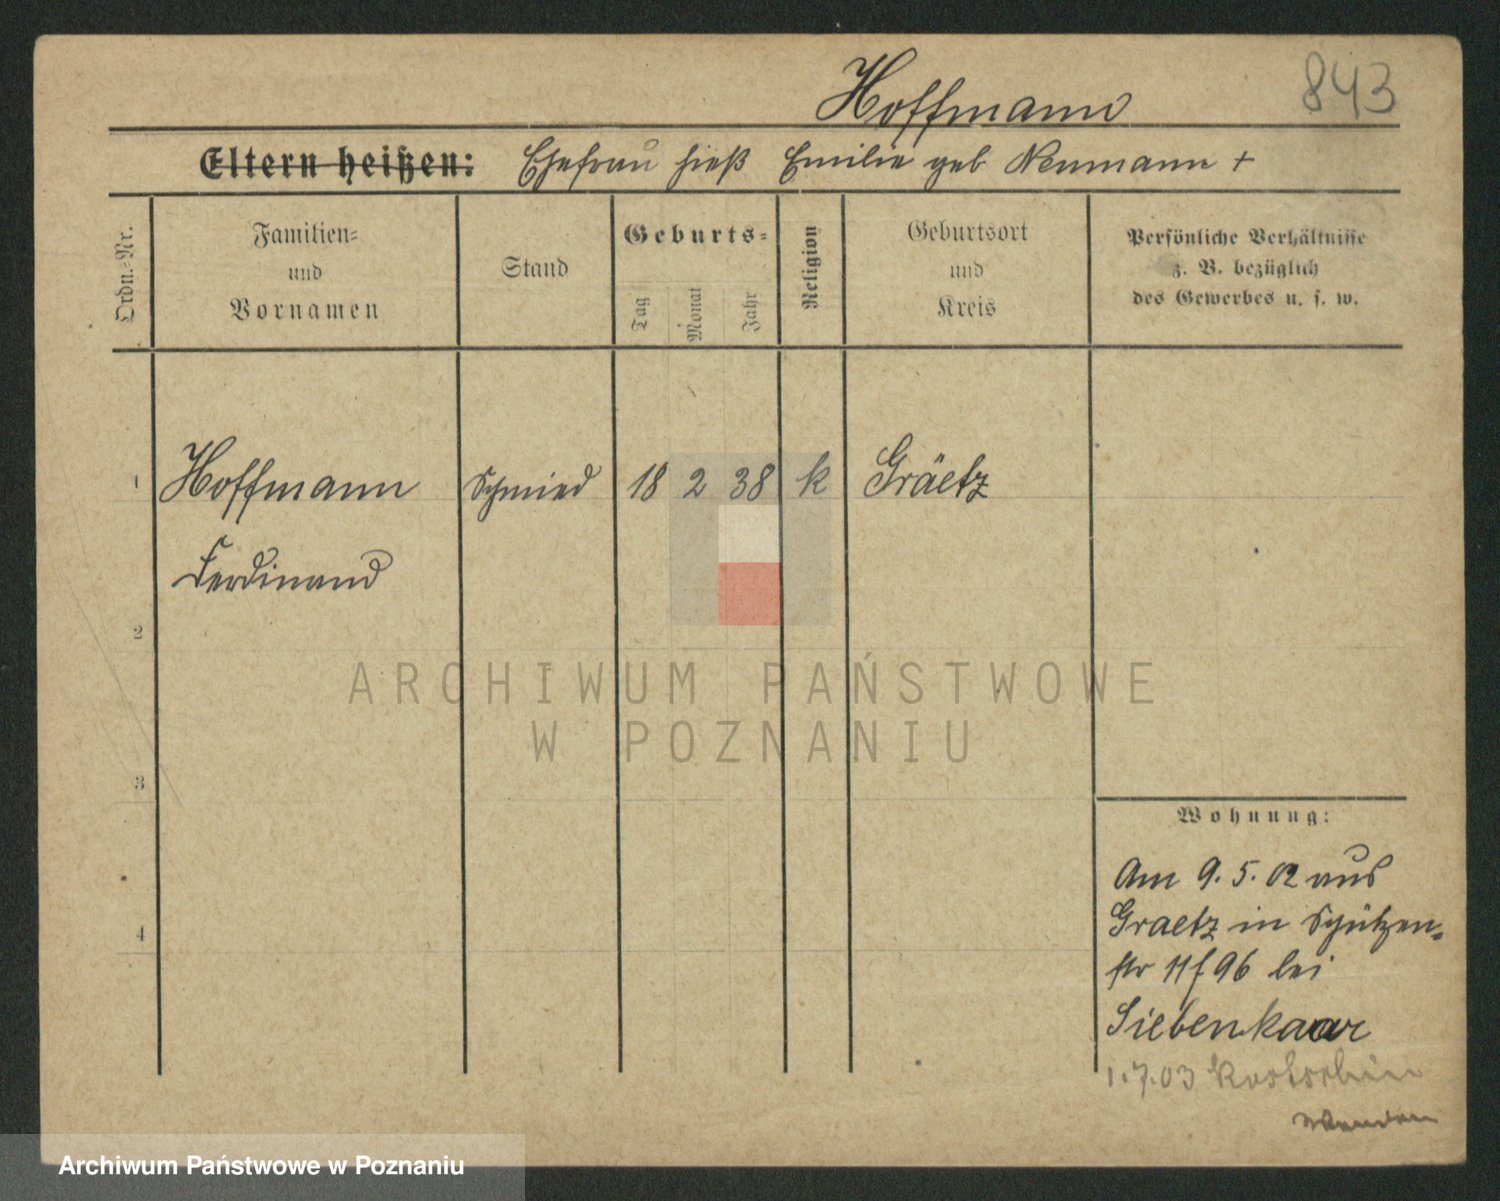 Hoffmann
843
Eltern heißen: Ehefrau hieß Emilie geb Neumann +
Ordn.-Nr.
Familien-
und
Vornamen
Stand
Geburts-
Tag
Monat
Jahr
Religion
Geburtsort
und
Kreis
Persönliche Verhältnisse
z. B. bezüglich
des Gewerbes u. s. w.
1 Hoffmann Schmied 18 2 38 k Gräetz
Ferdinand
2
3
4
Wohnung:
Am 9. 5. 02 aus
Graetz in Schützen-
str 11 f 96 bei
Siebenkaar
1.7.03 Kostschin
Wenden
ARCHIWUM PAŃSTWOWE
W POZNANIU
Archiwum Państwowe w Poznaniu